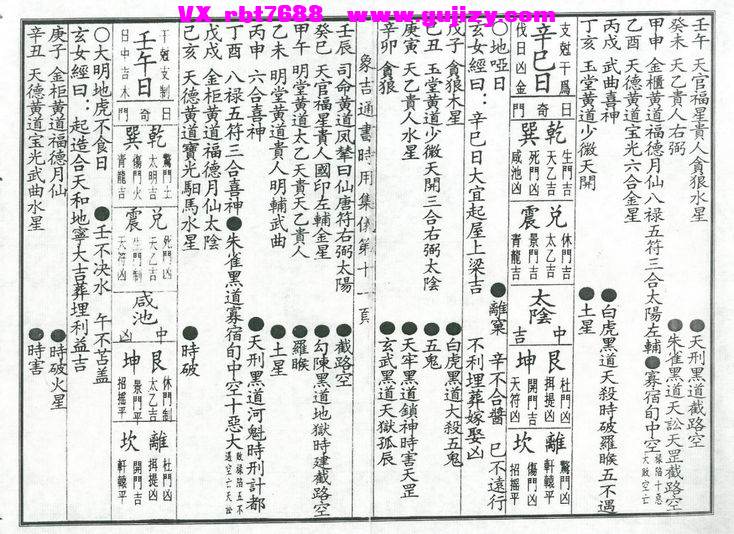 VX rbt7688 www.gujizy.com
壬午 天官福星貴人貪狼水星 ●天刑黑道截路空
癸未 天乙貴人右弼 ●朱雀黑道天訟天罡截路空
甲申 金櫃黃道福德月仙八祿五符三合太陽左輔●寡宿旬中空
乙酉 天德黃道宝光六合金星
丙戌 武曲喜神 ●白虎黑道天殺時破羅睺五不遇
丁亥 玉堂黃道少微天開 ●土星
支尅干爲伐日凶
辛巳日
日奇門
金
乾 生門吉 天乙吉
巽 死門凶 咸池凶
兌 休門吉 太乙吉
震 景門吉 青龍吉
太陰
中吉
艮 杜門凶 揖提凶
坤 開門吉 天符凶
離 驚門凶 軒轅平
坎 傷門凶 招搖平
○地啞日 ●離窠 辛不合醬 巳不遠行
玄女經曰：辛巳日大宜起屋上梁吉 不利埋葬嫁娶凶
戊子 貪狼木星 ●白虎黑道大殺五鬼
己丑 玉堂黃道少微天開三合右弼太陰 ●五鬼
庚寅 天乙貴人水星 ●天牢黑道鎖神時害天罡
辛卯 貪狼 ●玄武黑道天獄孤辰
象吉通書時用集儀第十一頁
壬辰 司命黃道鳳輦曰仙唐符右弼太陽 ●截路空
癸巳 天官福星貴人國印左輔金星 ●勾陳黑道地獄時建截路空
甲午 明堂黃道太乙天貴天乙貴人 ●羅睺
乙未 明堂黃道貴人明輔武曲 ●土星
丙申 六合喜神 ●天刑黑道河魁時刑計都
丁酉 八祿五符三合喜神●朱雀黑道寡宿旬中空十惡大
戊戌 金柜黃道福德月仙太陰
己亥 天德黃道寶光馹馬水星 ●時破
干尅支制日日中吉
壬午日
日奇門
木
乾 驚門土 太明吉
巽 傷門火 青龍吉
兌 死門凶 天乙吉
震 生門制 天符凶
咸池
中凶
艮 休門制 太乙吉
坤 景門平 招搖平
離 杜門凶 揖提凶
坎 開門吉 軒轅平
○大明地虎不食日 ●壬不決水 午不苫蓋
玄女經曰：起造合天和地寧大吉葬埋利益吉
庚子 金柜黃道福德月仙 ●時破火星
辛丑 天德黃道宝光武曲水星 ●時害